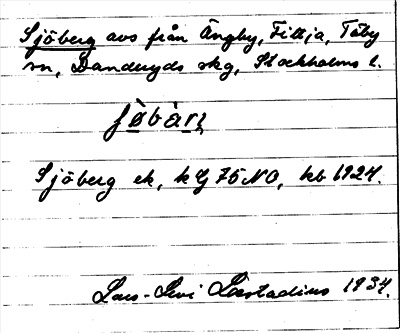 Sjöberg avs från Ängby, Fittja, Täby
sn, Danderyds skg, Stockholms l.
Sjöberg ek, k 4 75 NO, kb 1924.
Lars-Levi Læstadius 1934.